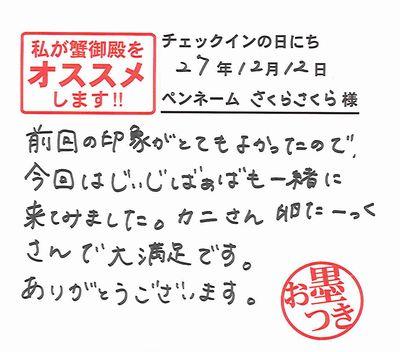 私が蟹御殿を
オススメ
します!!
チェックインの日にち
27年12月12日
ペンネーム さくらさくら様
前回の印象がとてもよかったので、
今回はじぃじばぁばも一緒に
来てみました。カニさん 卵たーっく
さんで大満足です。
ありがとうございます。
お墨つき